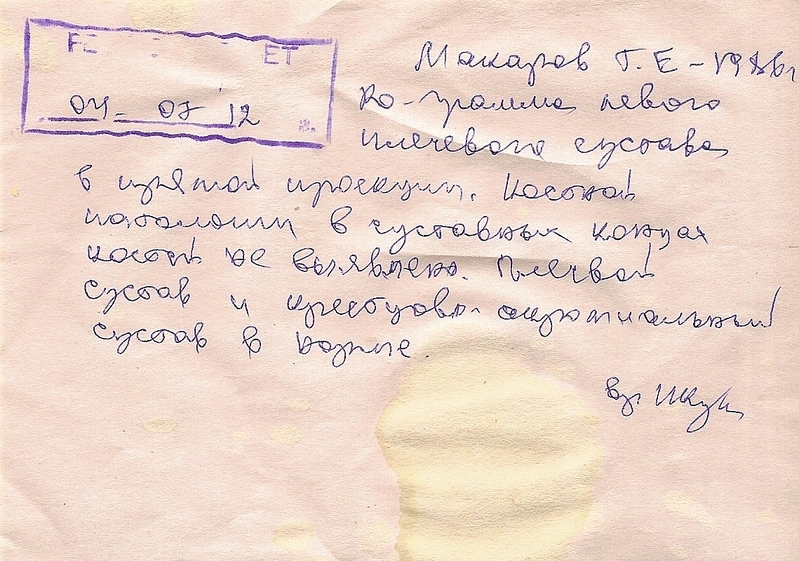 04 - 07 12 г.
Макаров Г. Е - 1986г
Rо-грамма левого
плечевого сустава
в прямой проекции. Костной
патологии в суставных концах
костей не выявлено. Плечевой
сустав и крестцово-акромиальный
сустав в норме.
вр.